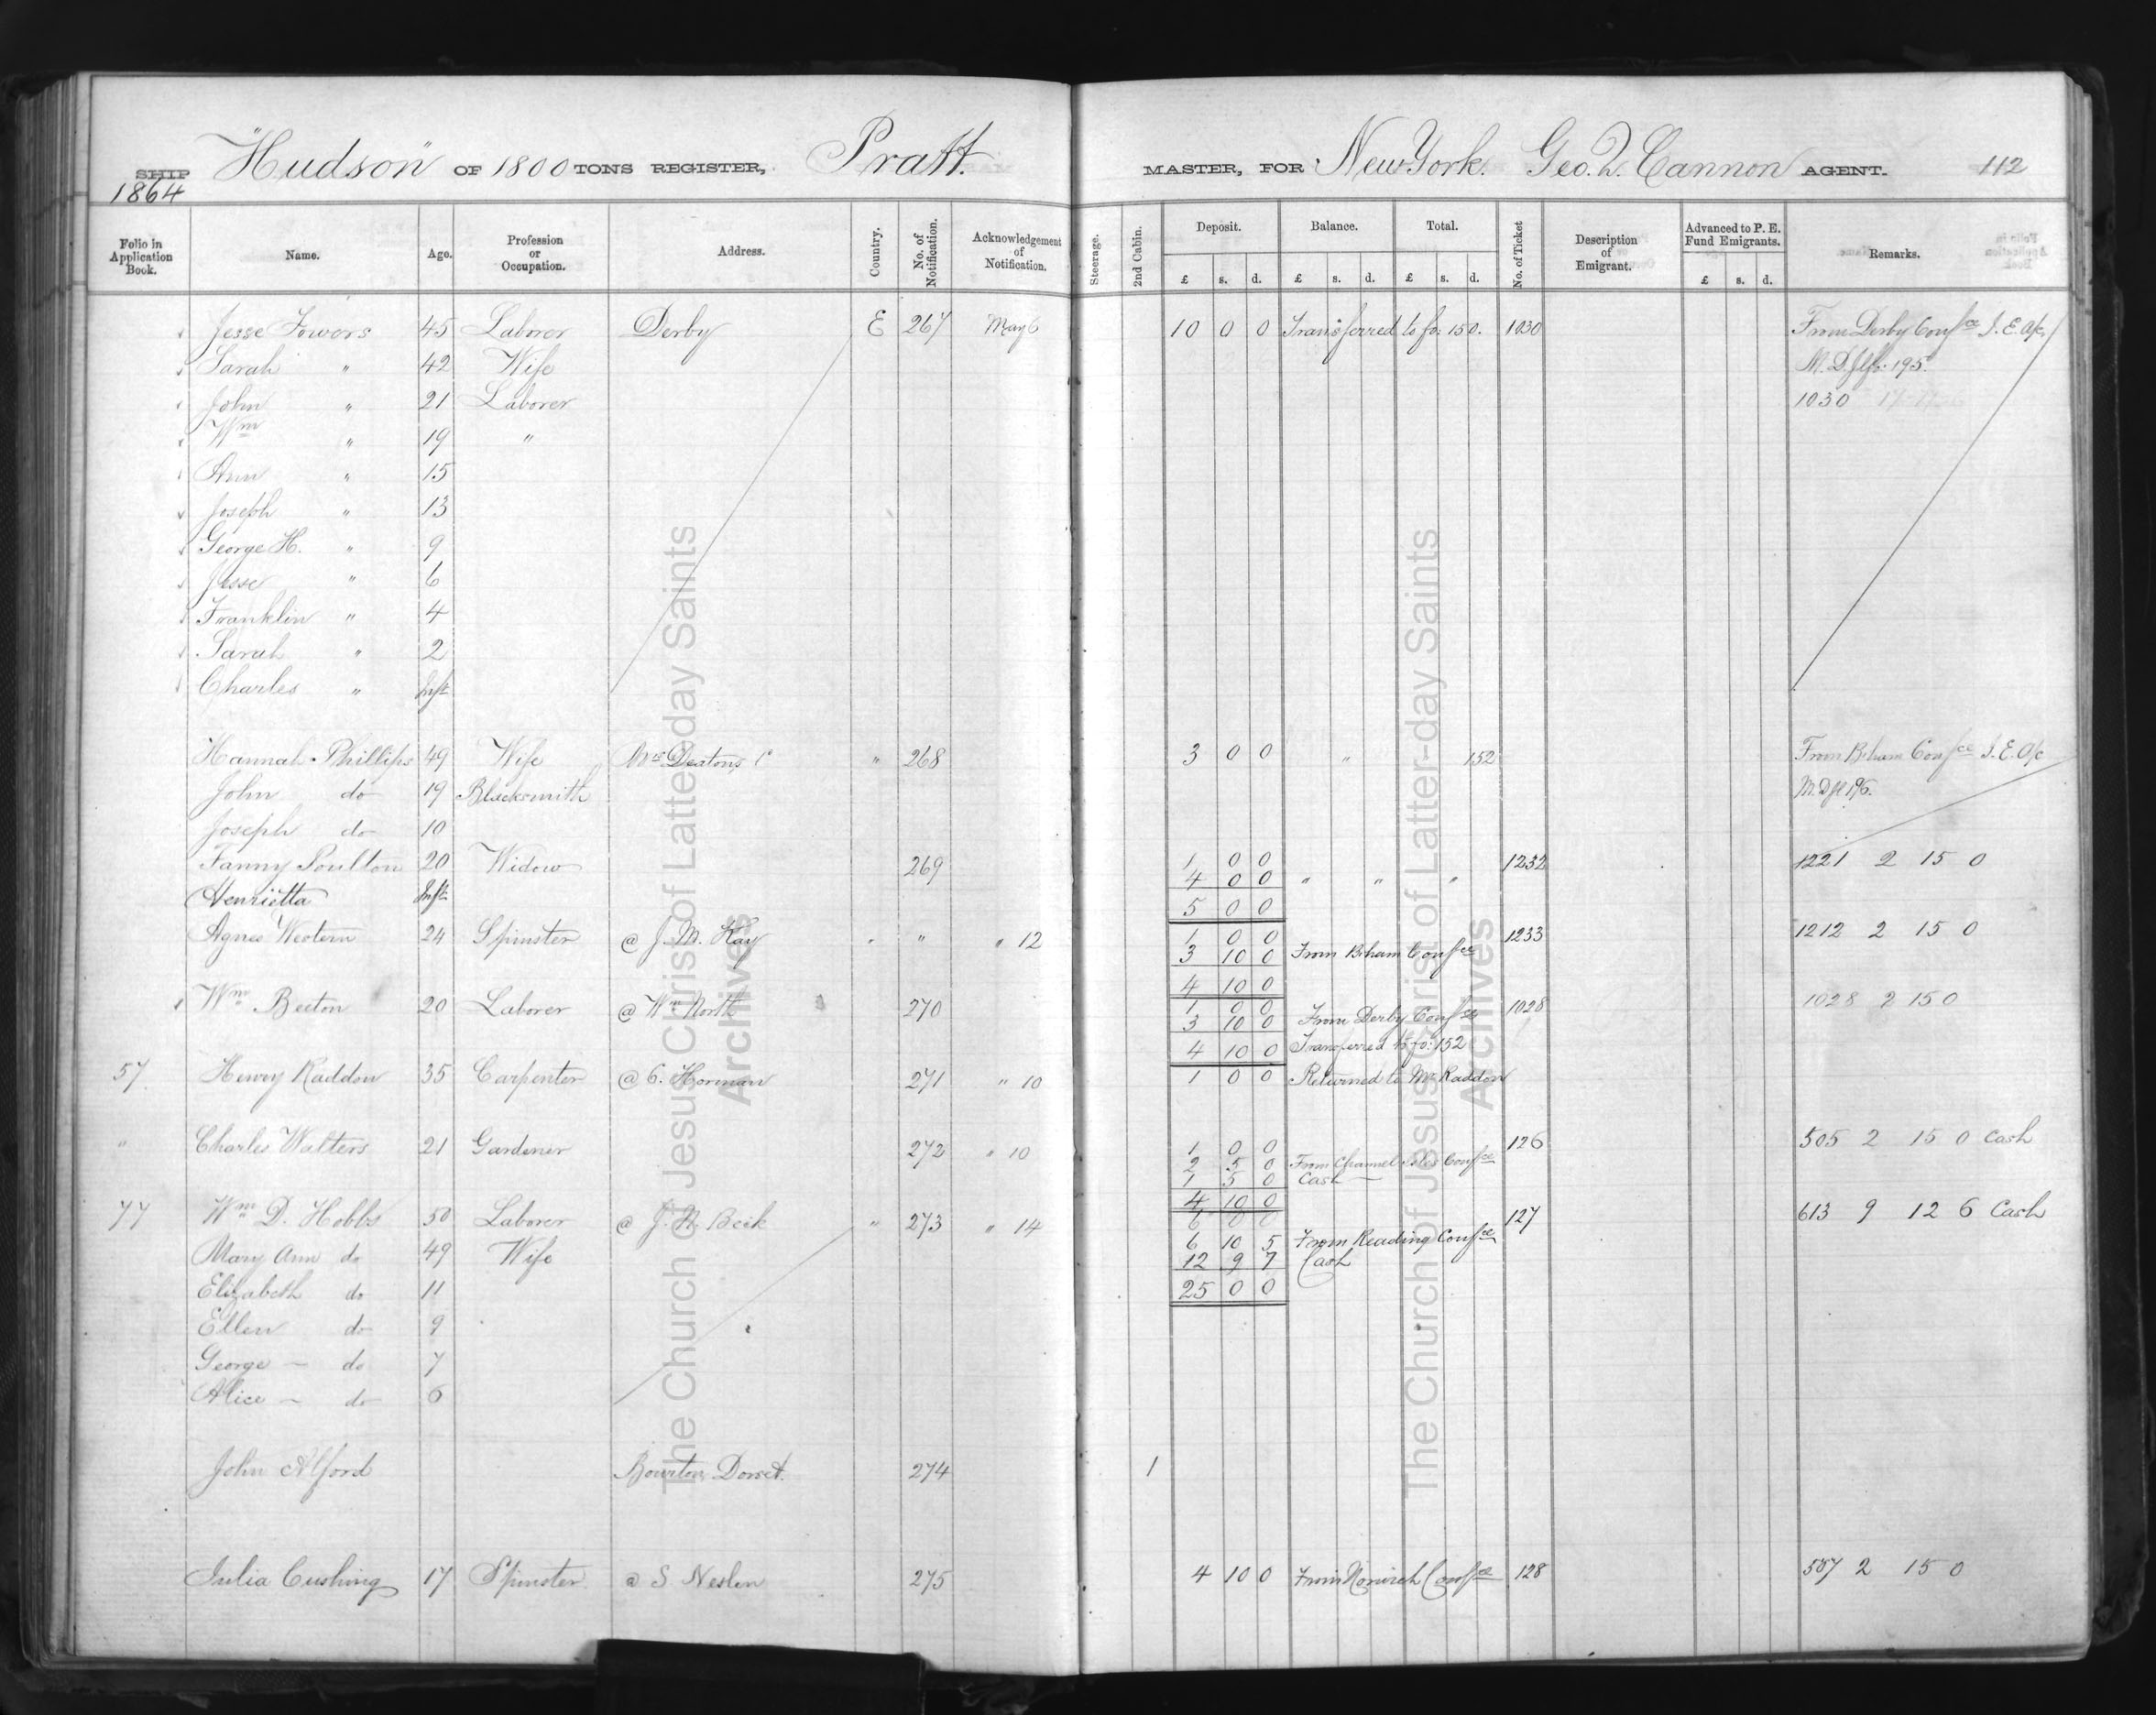 SHIP "Hudson" OF 1800 TONS REGISTER, Pratt. MASTER, FOR New York. Geo. Q. Cannon AGENT. 112
1864
Folio in Application Book. Name. Age. Profession or Occupation. Address. Country. No. of Notification. Acknowledgement of Notification. Steerage. 2nd Cabin. Deposit. Balance. Total. No. of Ticket Description of Emigrant. Advanced to P. E. Fund Emigrants. Remarks.
£ s. d. £ s. d. £ s. d. £ s. d.
Jesse Fowers 45 Laborer Derby E 267 May 6 10 0 0 Transferred to fo: 150. 1030 From Derby Confce I. E. O/c
Sarah " 42 Wife M. D. 195
John " 21 Laborer 1030
Wm " 19 "
Ann " 15
Joseph " 13
George H. " 9
Jesse " 6
Franklin " 4
Sarah " 2
Charles " Inft
Hannah Phillips 49 Wife Deatons " 268 3 0 0 " 152 From B.ham Confce I. E. O/c
John do 19 Blacksmith M. D. 196.
Joseph do 10
Fanny Poulton 20 Widow 269 1 0 0 1232 1221 2 15 0
4 0 0 " " "
Henrietta Inft 5 0 0
Agnes Western 24 Spinster @ J. M. Kay " " " 12 1 0 0 1233 1212 2 15 0
3 10 0 From B.ham Confce
4 10 0
Wm Beeton 20 Laborer @ Wm North 270 1 0 0 1028 1028 2 15 0
3 10 0 From Derby Confce
4 10 0 Transferred to fo: 152
57 Henry Raddon 35 Carpenter @ G. Horman 271 " 10 1 0 0 Returned to Mr Raddon
" Charles Walters 21 Gardener 272 " 10 1 0 0 126 505 2 15 0 Cash
2 5 0 From Channel Isles Confce
1 5 0 Cash
4 10 0
77 Wm D. Hobbs 50 Laborer @ Beik " 273 " 14 6 0 0 127 613 9 12 6 Cash
6 10 5 From Reading Confce
Mary Ann do 49 Wife 12 9 7 Cash
Elizabeth do 11 25 0 0
Ellen do 9
George do 7
Alice do 6
John Alford Bourton, Dorset. 274 1
Julia Cushing 17 Spinster @ S Neslen 275 4 10 0 From Norwich Confce 128 507 2 15 0
The Church of Jesus Christ of Latter-day Saints
Archives
The Church of Jesus Christ of Latter-day Saints
Archives